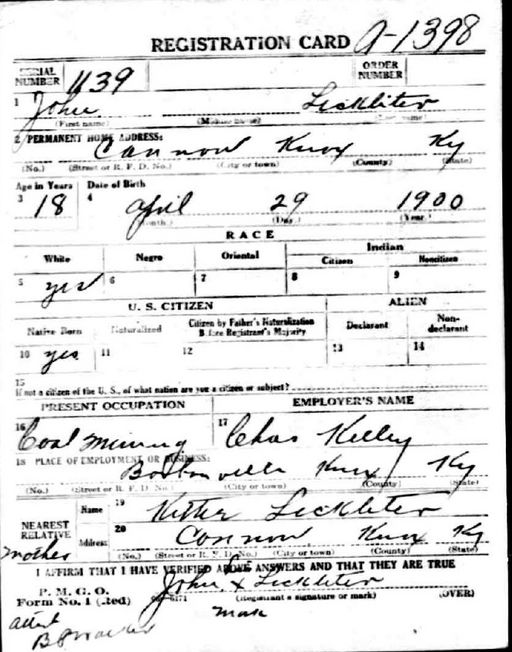 REGISTRATION CARD A-1398
SERIAL NUMBER 1139 ORDER NUMBER
1 John Lickliter
(First name) (Middle name) (Last name)
2 PERMANENT HOME ADDRESS:
Cannon Knox Ky
(No.) (Street or R. F. D. No.) (City or town) (County) (State)
Age in Years Date of Birth
3 18 4 April 29 1900
(Month.) (Day.) (Year.)
RACE
White Negro Oriental Indian
Citizen Noncitizen
5 yes 6 7 8 9
U. S. CITIZEN ALIEN
Native Born Naturalized Citizen by Father's Naturalization Before Registrant's Majority Declarant Non-declarant
10 yes 11 12 13 14
15
If not a citizen of the U. S., of what nation are you a citizen or subject?
PRESENT OCCUPATION EMPLOYER'S NAME
16 Coal Mining 17 Chas Kelley
18 PLACE OF EMPLOYMENT OR BUSINESS:
Knox Ky
(No.) (Street or R. F. D. No.) (City or town) (County) (State)
NEAREST RELATIVE Name 19 Lickliter
mother Address 20 Cannon Knox Ky
(No.) (Street or R. F. D. No.) (City or town) (County) (State)
I AFFIRM THAT I HAVE VERIFIED ABOVE ANSWERS AND THAT THEY ARE TRUE
P. M. G. O.
Form No. 1 (Red) John x Lickliter
(Registrant's signature or mark) (OVER)
mark
attest